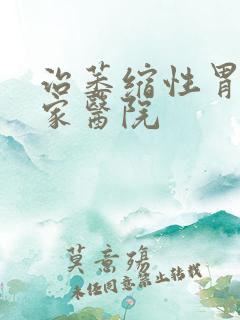 治萎缩性胃
家醫院
莫意殤
未经同意禁止转载